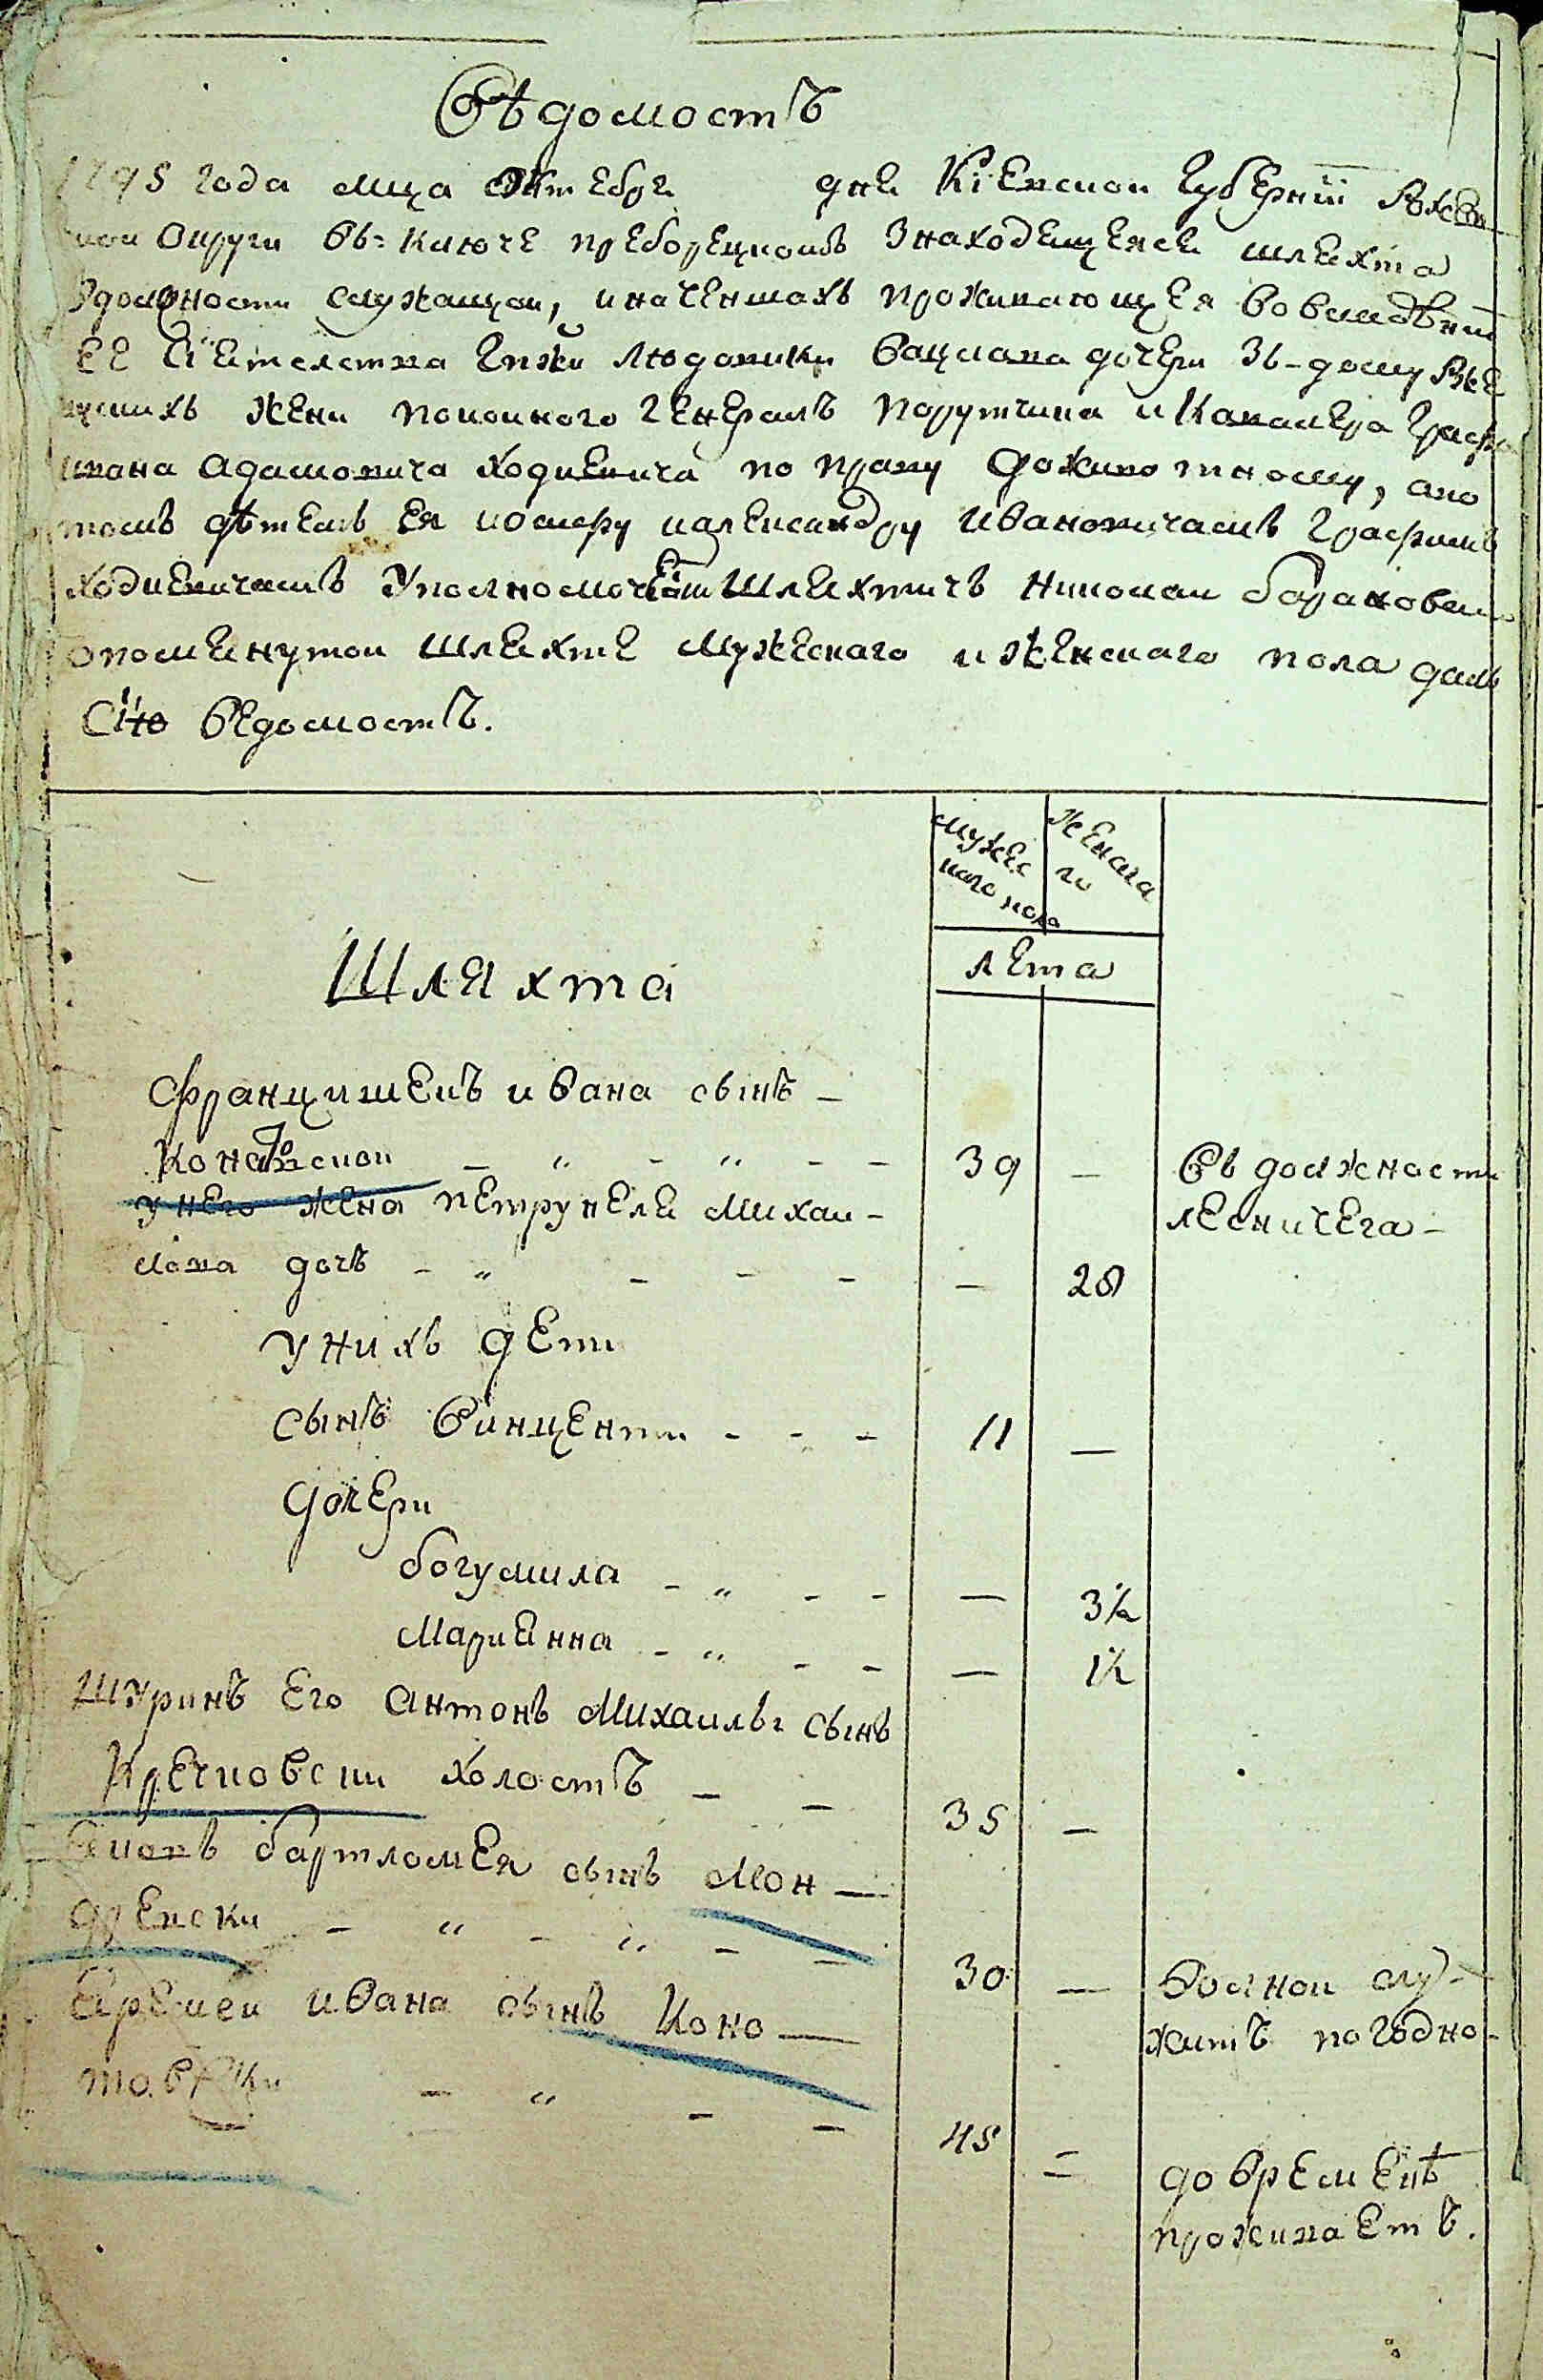 Вѣдомостъ
1795 года мца Октебре дня Кіевской Губерніи
Округи въ ключе преборецкомъ Знаходещеясе шлеяхта
служащои, и на ченшахъ проживающея во владѣніи
Людовики Вацлава дочери Зъ-дому Рже
вускихъ жени покоиного Генералъ Порутчика и Кавалера Графа
ивана адамовича ходкевича по праву доживотному,
дѣтемъ ея иосифу и александру ивановичамъ Графимъ
ходкевичамъ Уполномочени Шляхтичъ Николаи
опомянутои Шляхте мужескаго и женскаго пола далъ
Сію ведомостъ.
мужес
каго пола
женска
го
Шляхта
лета
францишекъ ивана сынъ –
39 – Въ должности
лесничега –
у него жена петрунеля михаи –
лова дочъ – „ – – – – 28
у нихъ дети
сынъ винценти – – – 11 –
дочери
богумила – „ – – – 3½
мариянна – „ – – – 1½
шуринъ его антонъ михаилы сынъ
Кречковски холостъ – – 35 –
Яковъ бартломея сынъ мон –
дževски – „ – „ – – 30 – Волнои слу-
житъ погодно-
ивана сынъ Коно –
товски – „ – – 45 = до времени
проживаетъ.